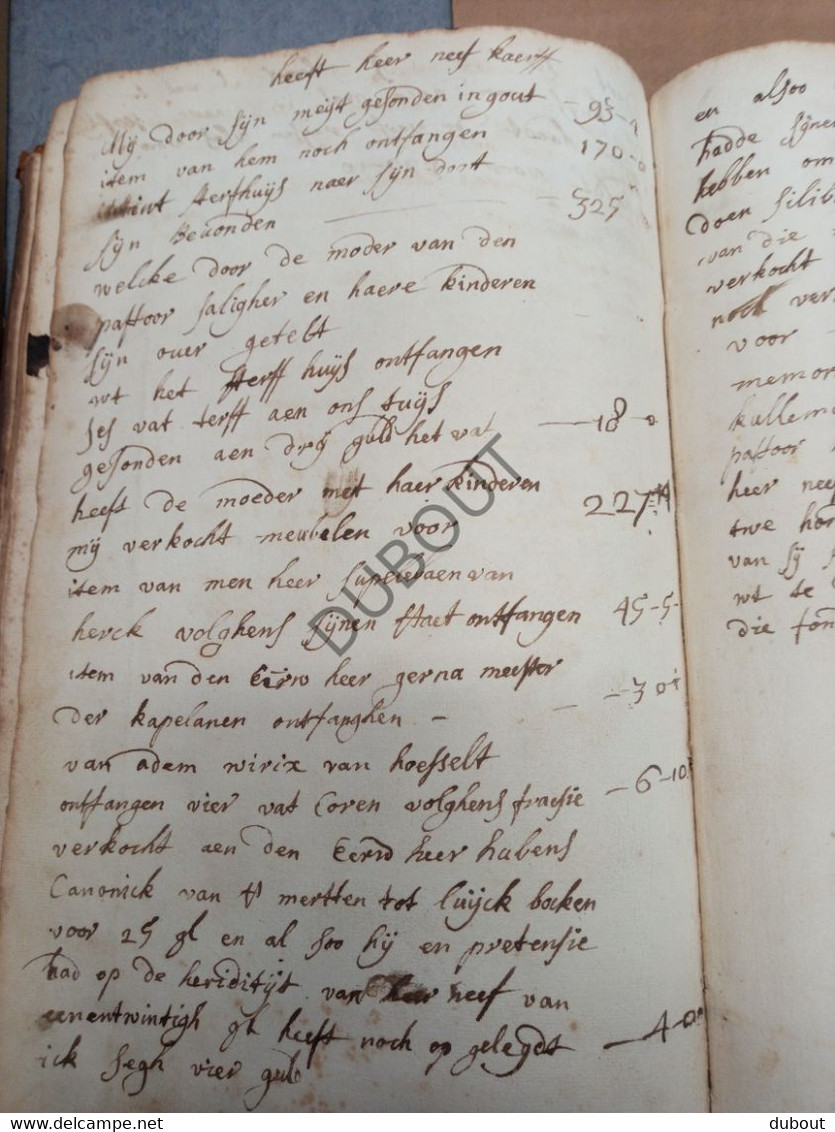 heeft heer neef kaerff
Mij door sijn meijt gesonden in gout - 93-
item van hem noch ontfangen - 170-0
int sterfhuijs naer sijn doot
sijn Beuonden - 325
welcke door de moder van den
pastoor saligher en haere kinderen
sijn ouer getelt
wt het sterff huijs ontfangen
ses vat terff aen ons tuijs
gesonden aen drij guld het vat - 18-0
heeft de moeder mijt haer kinderen
mij verkocht meubelen voor 227-
item van men heer van
herck volghens sijnen staet ontfangen 45-5-
item van den Eirw heer gerna meester
der kapelanen ontfanghen - - 30
van adem wirix van hoesselt
ontfangen vier vat Coren volghens fraesie - 6-10
verkocht aen den Eerw heer hubens
Canonick van st mertten tot luijck bocken
voor 25 gl en al soo hij en pretensie
had op de heriditijt van heer neef van
eenentwintigh gl heeft noch op gelegdt - 4-0
ick segh vier gul
en alsoo
hadde sijne
hebben om
doen
van die
verkocht
noch ver
voor
memor
kullem
pastoor
heer neef
twe hor
van sij
wt te
die son
DUBOUT
delcampe.net
dubout